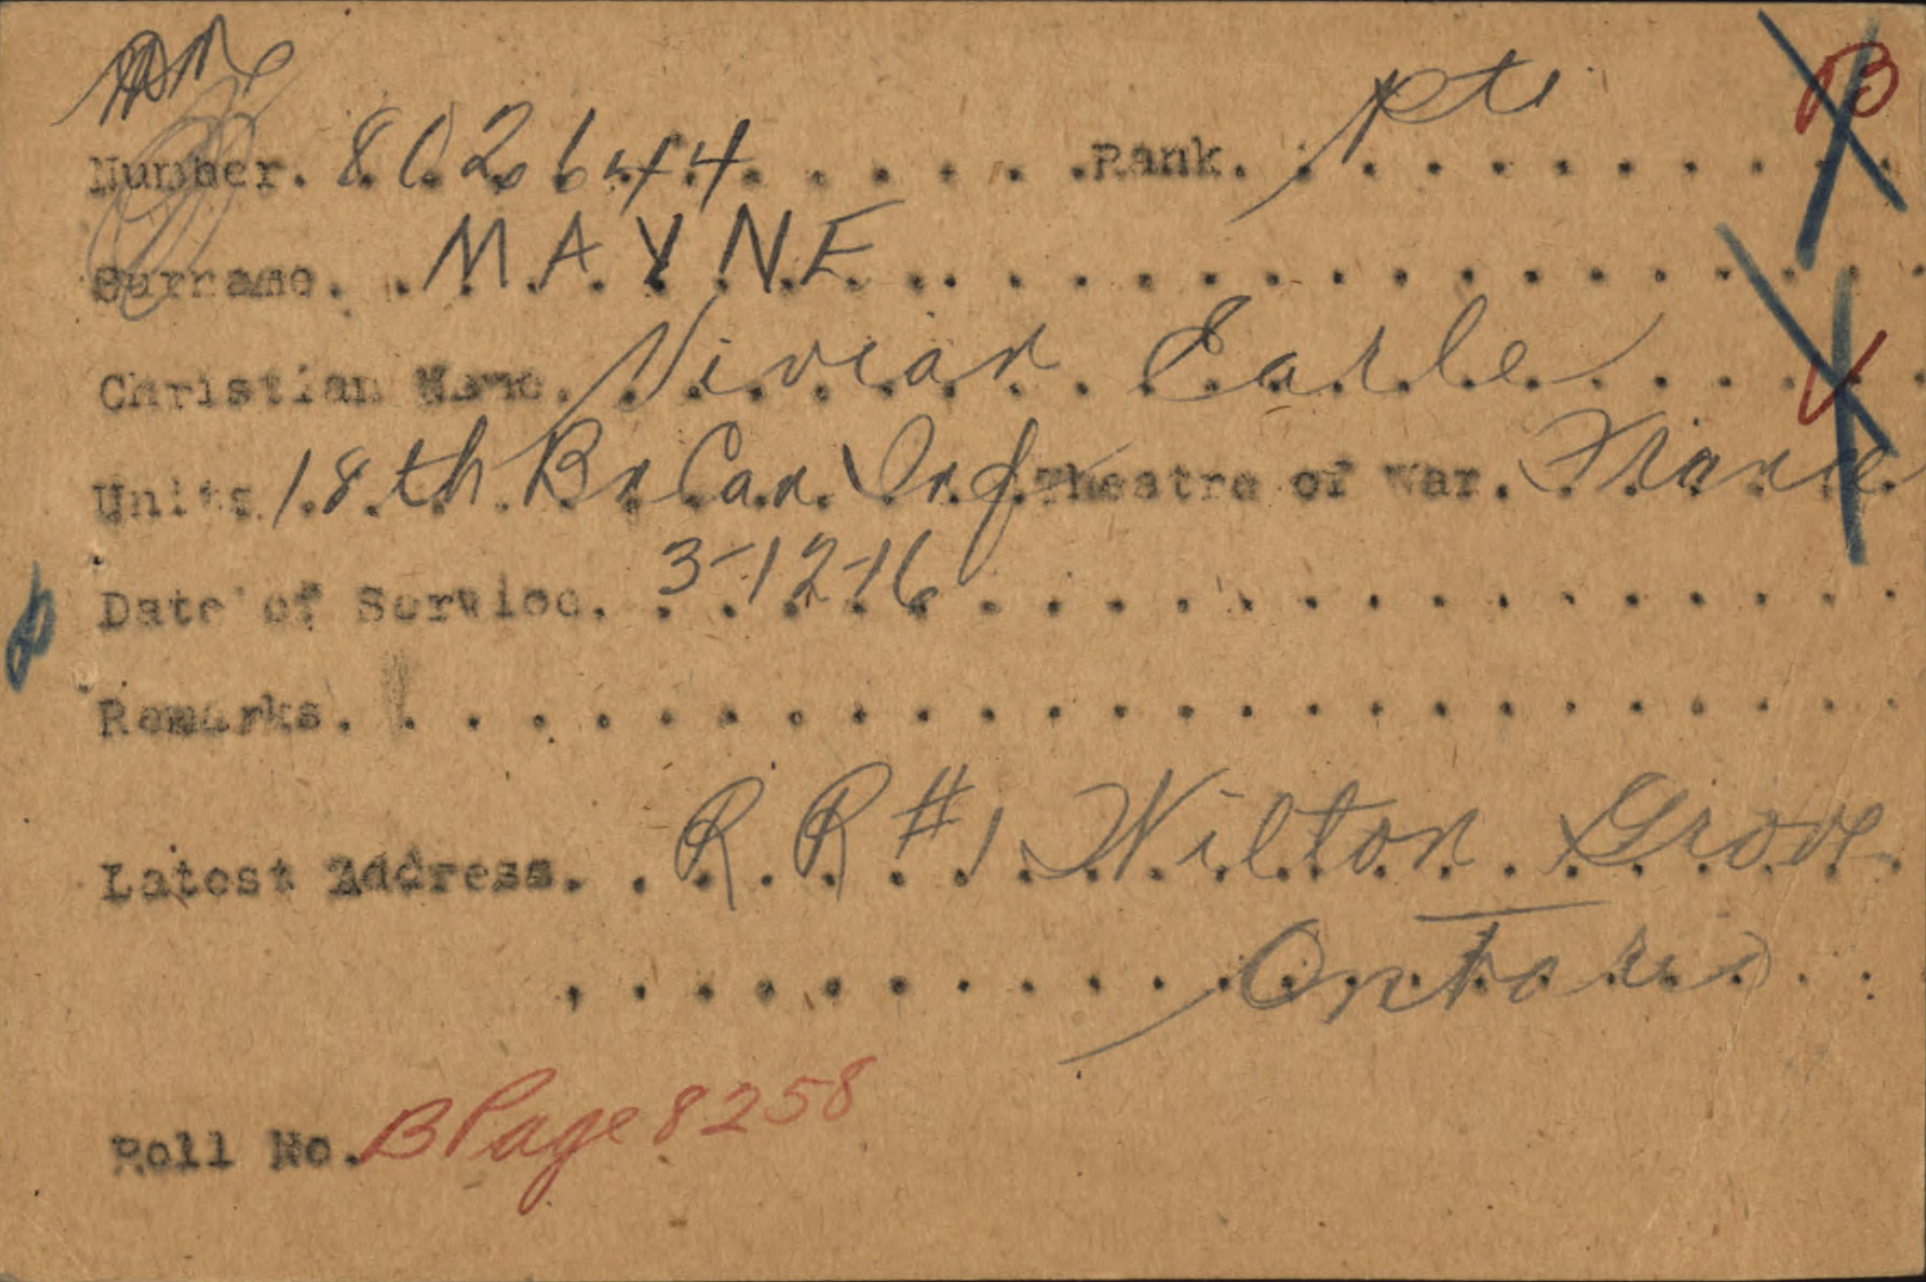 B
Number. 802644 Rank. Pte
Surname. MAYNE
Christian Name. Vivian Earle
V
Units 18th Bn Can Inf Theatre of War. France
Date of Service. 3-12-16
Remarks.
Latest Address. R. R #1 Wilton Grove
Ontario
Roll No. B Page 8258